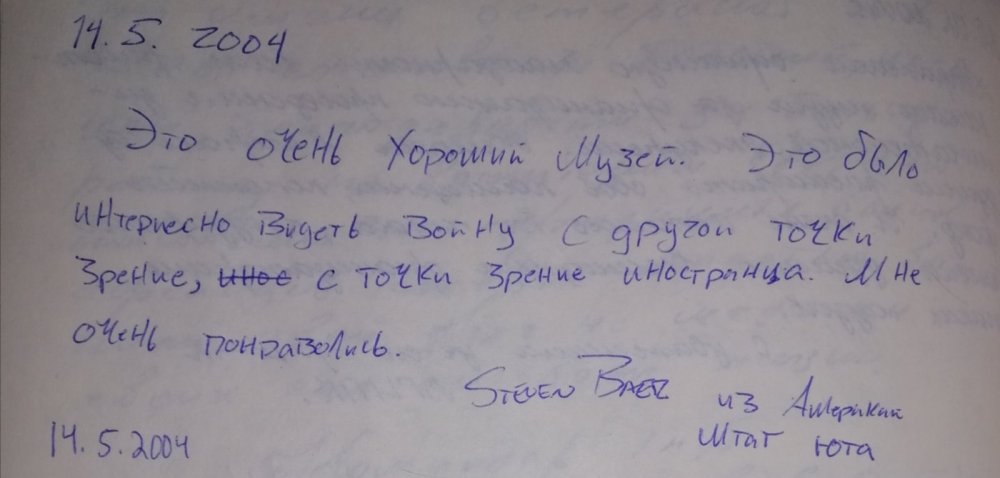 14.5. 2004
Это очень Хороший Музей. Это было
интернесно Видеть Войну с другой точки
Зрение, иное с точки Зрение иностранца. Мне
очень понраволись.
Steven Baer из Америкии
штат юта
14.5.2004